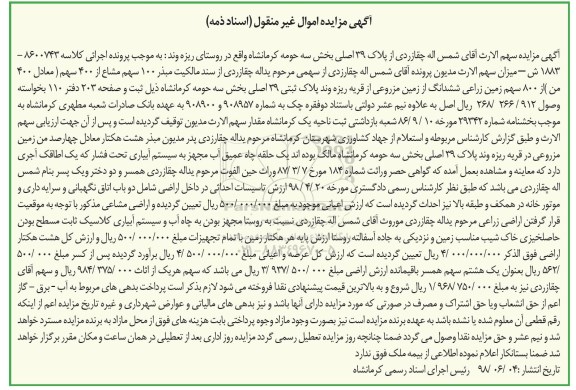 آگهی مزایده اموال غیر منقول (اسناد ذمه)
آگهی مزایده سهم الارث آقای شمس اله چقازردی از پلاک ۳۹ اصلی بخش سه حومه کرمانشاه واقع در روستای ریزه وند : به موجب پرونده اجرائی کلاسه ۸۶۰۰۷۴۳ –
۱۸۸۳ ش – میزان سهم الارث مدیون پرونده آقای شمس اله چقازردی از سهمی مرحوم یداله چقازردی از سند مالکیت میدر ۱۰۰ سهم مشاع از ۴۰۰ سهم ( معادل ۴۰۰
من )از ۸۰۰ سهم زمین زراعی ششدانگ از زمین مزروعی از قریه ریزه وند پلاک ثبتی ۳۹ اصلی بخش سه حومه کرمانشاه ذیل ثبت و صفحه ۲۰۳ دفتر ۱۱۰ بخواسته
وصول ۹۱۲ / ۲۶۶ / ۲۶۸ ریال اصل به علاوه نیم عشر دولتی باستناد دوفقره چک به شماره ۹۰۸۹۵۷ و ۹۰۸۹۰۰ به عهده بانک صادرات شعبه مطهری کرمانشاه به
موجب بخشنامه شماره ۲۹۳۴۲ مورخه ۱۶ / ۹ / ۸۶ شعبه بازداشتی ثبت ناحیه یک کرمانشاه مقدار سهم الارث مدیون توقیف گردیده است و پس از آن جهت ارزیابی سهم
الارث و طبق گزارش کارشناس مربوطه و استعلام از جهاد کشاورزی شهرستان کرمانشاه مرحوم یداله چقازردی پدر مدیون میدر هشت هکتار معادل چهارصد من زمین
مزروعی در قریه ریزه وند پلاک ۳۹ اصلی بخش سه حومه کرمانشاه مالک بوده اند یک حلقه چاه عمیق آب مجهز به سیستم آبیاری تحت فشار که یک اطاقک آجری
دارد که معاینه و مشاهده بعمل آمده که گواهی حصر وراثت شماره ۱۸۴ مورخ ۷ / ۳ / ۸۷ وراث حین الفوت مرحوم یداله چقازردی همسر و دو دختر ویک پسر بنام شمس
اله چقازردی می باشد که طبق نظر کارشناس رسمی دادگستری مورخه ۲۰ / ۴ / ۹۸ ارزش تاسیسات احداثی در داخل اراضی شامل دو باب اتاق نگهبانی و سرایه داری و
موتور خانه در همکف و طبقه بالا نیز احداث گردیده است که ارزش اعیانی موجود به مبلغ ۰۰۰/ ۰۰۰/ ۵۰۰ ریال تعیین گردیده و اراضی مشاعی مذکور با توجه به موقعیت
قرار گرفتن اراضی زراعی مرحوم یداله چقازردی موروث آقای شمس اله چقازردی نسبت به روستا مجهز بودن به چاه آب و سیستم آبیاری کلاسیک ثابت مسطح بودن
حاصلخیزی خاک شیب مناسب زمین و نزدیکی به جاده آسفالته روستا ارزش پایه هر هکتار زمین با تمام تجهیزات مبلغ ۰۰۰/ ۰۰۰/ ۵۰۰ ریال و ارزش کل هشت هکتار
اراضی فوق الذکر ۰۰۰/ ۰۰۰/ ۰۰۰/ ۴ ریال تعیین گردیده است که ارزش کل عرصه و اعیانی مبلغ ۰۰۰/ ۰۰۰/ ۵۰۰/ ۴ ریال برآورد گردیده پس از کسر مبلغ ۵۰۰/
۵۶۲/ ریال بعنوان یک هشتم سهم همسر باقیمانده ارزش اراضی مبلغ ۰۰۰/ ۵۰۰/ ۹۳۷/ ۳ ریال می باشد که سهم هریک از اناث ۰۰۰/ ۳۷۵/ ۹۸۴ ریال و سهم آقای
چقازردی نیز به مبلغ ۰۰۰/ ۷۵۰/ ۹۶۸/ ۱ ریال شروع و به بالاترین قیمت پیشنهادی نقدا فروخته می شود لازم بذکر است پرداخت بدهی های مربوط به آب - برق – گاز
اعم از حق انشعاب ویا حق اشتراک و مصرف در صورتی که مورد مزایده دارای آنها باشد و نیز بدهی های مالیاتی و عوارض شهرداری و غیره تاریخ مزایده اعم از اینکه
رقم قطعی آن معلوم شده یا نشده باشد به عهده برنده مزایده است نیز بصورت وجود مازاد وجوه پرداختی بابت هزینه های فوق از محل مازاد به برنده مزایده مسترد خواهد
شد و نیم عشر و حق مزایده نقدا وصول می گردد ضمنا چنانچه روز مزایده تعطیل رسمی گردد مزایده روز اداری بعد از تعطیلی در همان ساعت و مکان مقرر برگزار خواهد
شد ضمنا بستانکار اعلام نموده اطلاعی از بیمه ملک فوق ندارد
تاریخ انتشار :۰۴ /۰۶ /۹۸ رئیس اجرای اسناد رسمی کرمانشاه